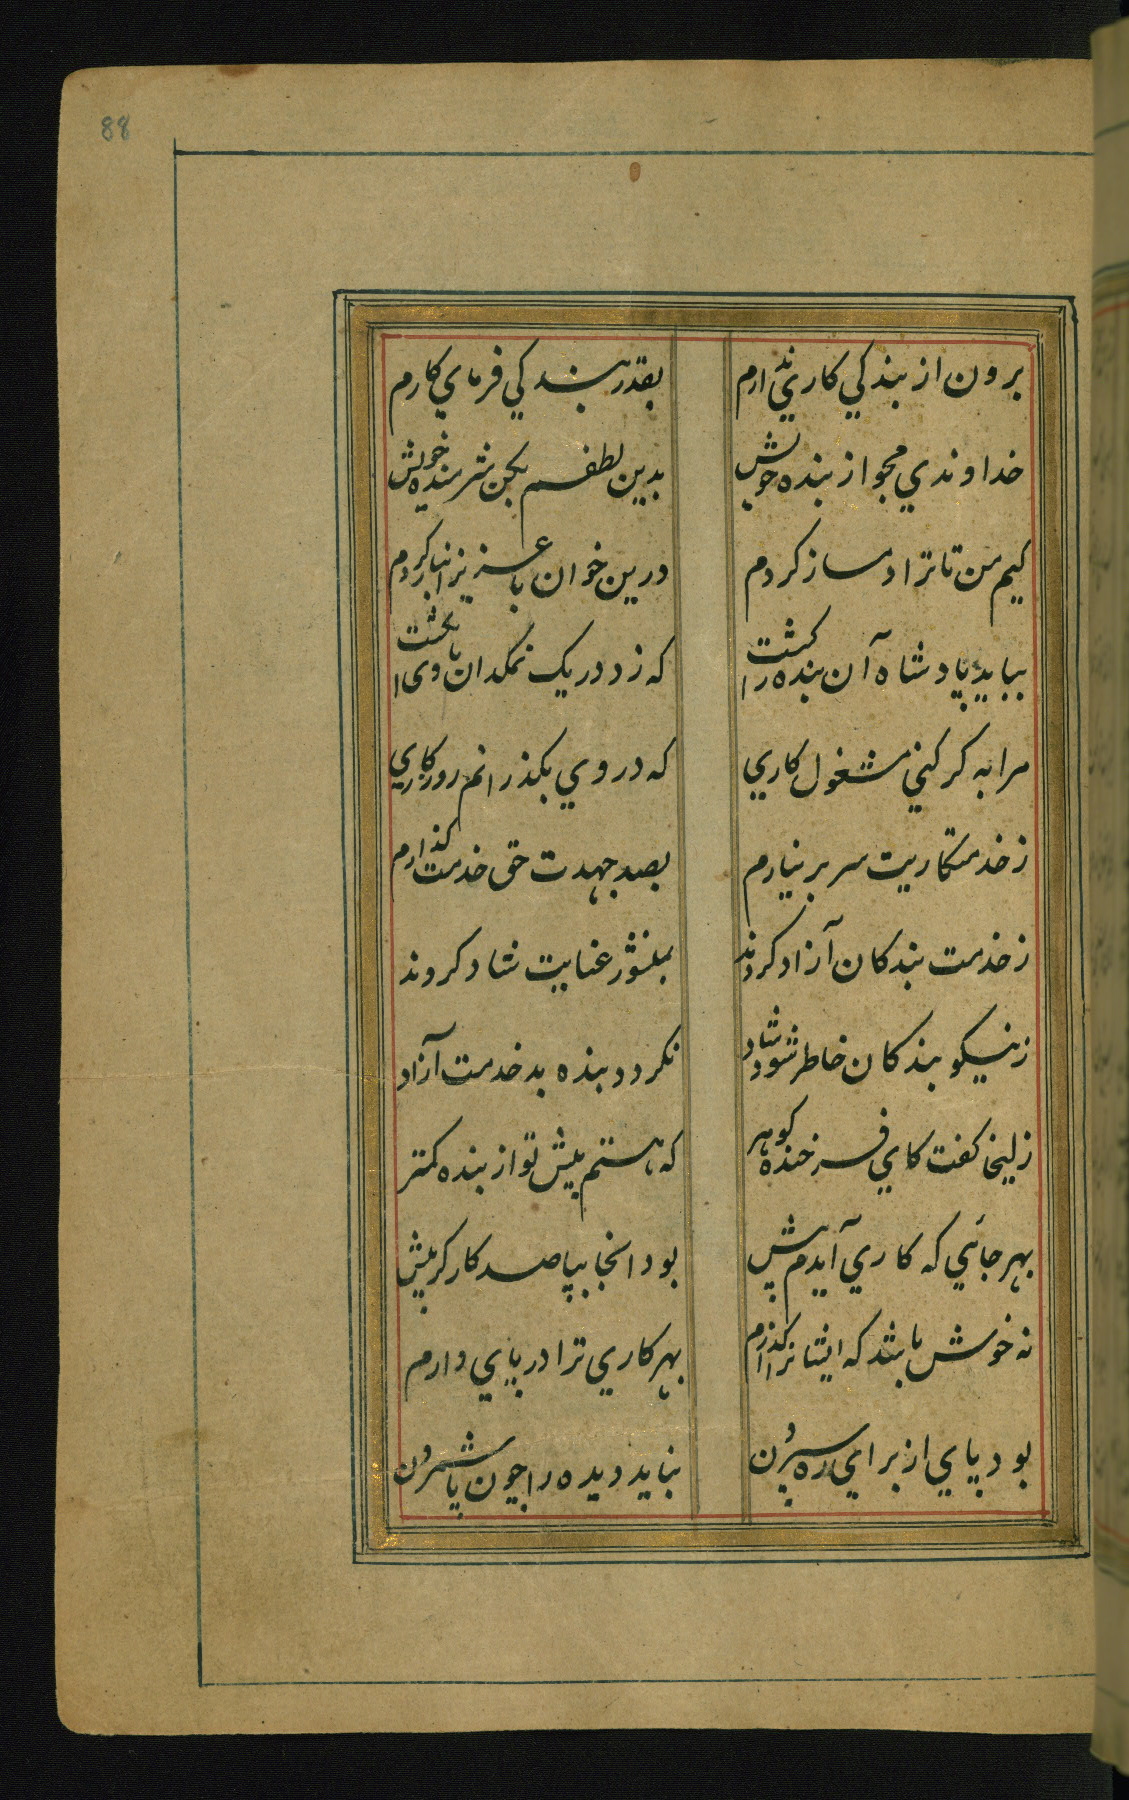 88
برون از بندكي كاري ندارم
بقدر بندكي فرماي كارم
خداوندي مجو از بنده خويش
بدين لطفم مكن شرمنده خويش
كيم من تا ترا دمساز كردم
درين خوان با عزيز انباز كردم
ببايد پادشاه آن بنده را كشت
كه زد در يك نمكدان با وى انكشت
مرا به كر كني مشغول كاري
كه در وي بكذرانم روزكاري
ز خدمتكاريت سر بر نيارم
بصد جهدت حق خدمت كذارم
ز خدمت بندكان آزاد كردند
بمنشور عنايت شاد كردند
ز نيكو بندكان خاطر شود شاد
نكردد بنده بد خدمت آزاد
زليخا كفت كاي فرخنده كوهر
كه هستم پيش تو از بنده كمتر
بهر جائي كه كاري آيدم پيش
بود انجا بپا صد كاركر بيش
نه خوش باشد كه ايشانرا كذارم
بهر كاري ترا در پاي دارم
بود پاي از براي ره سپردن
نبايد ديده را چون پا شمردن